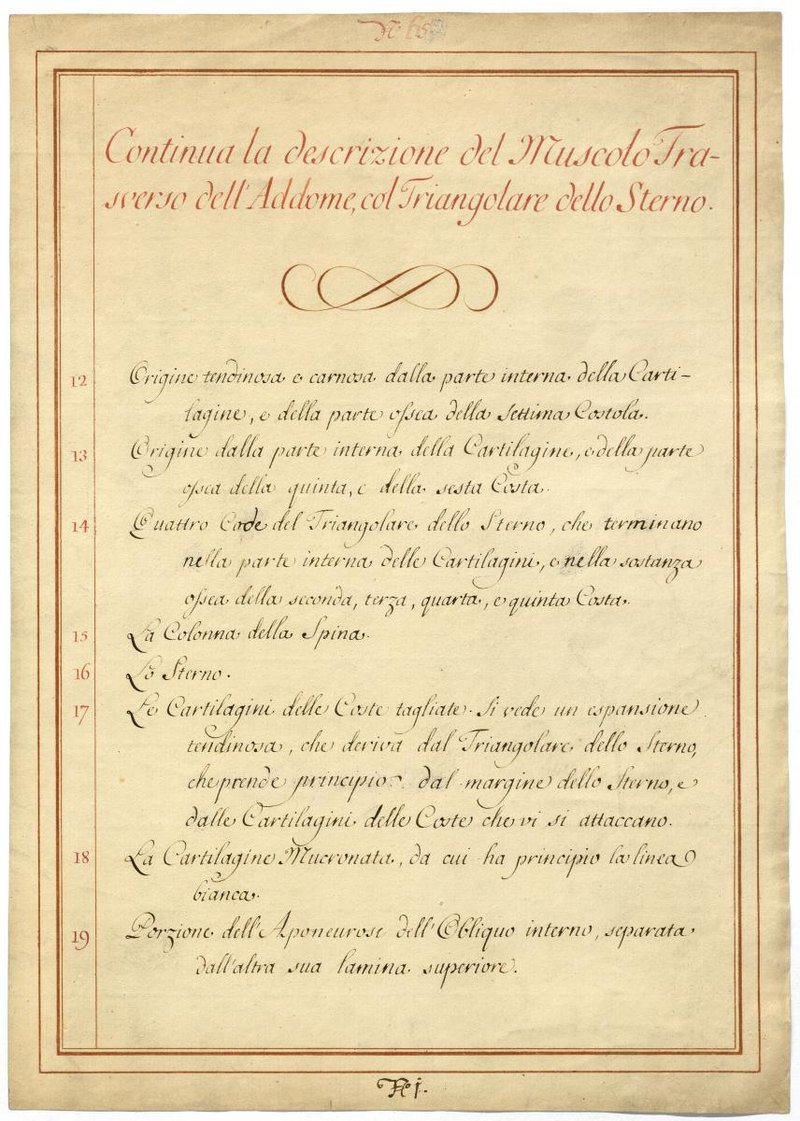 Continua la descrizione del Muscolo Tra-
sverso dell'Addome, col Triangolare dello Sterno.
12 Origine tendinosa e carnosa dalla parte interna della Carti-
lagine, e della parte ossea della settima Costola.
13 Origine dalla parte interna della Cartilagine, e della parte
ossea della quinta, e della sesta Costa.
14 Quattro Code del Triangolare dello Sterno, che terminano
nella parte interna delle Cartilagini, e nella sostanza
ossea della seconda, terza, quarta, e quinta Costa.
15 La Colonna della Spina.
16 Lo Sterno.
17 Le Cartilagini delle Coste tagliate. Si vede un espansione
tendinosa, che deriva dal Triangolare dello Sterno,
che prende principio dal margine dello Sterno, e
dalle Cartilagini delle Coste che vi si attaccano.
18 La Cartilagine Mucronata, da cui ha principio la linea
bianca.
19 Porzione dell'Aponeurose dell'Obliquo interno, separata
dall'altra sua lamina superiore.